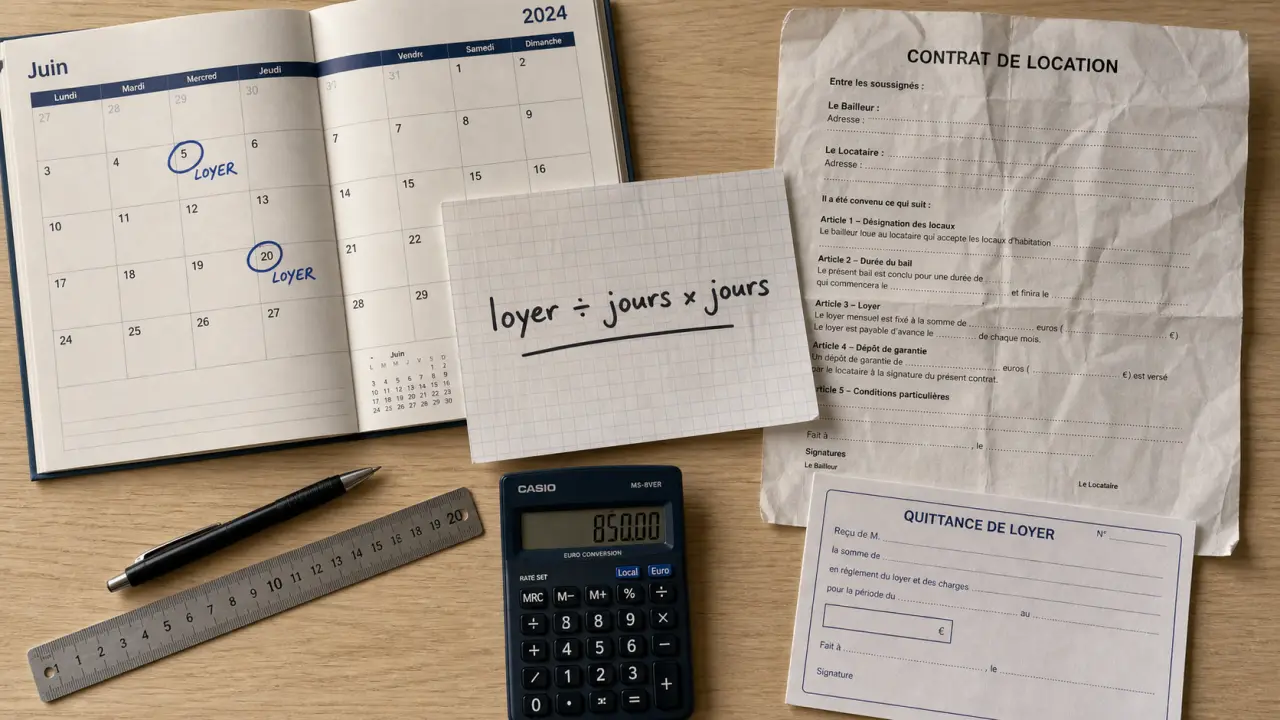 2024
Juin
Lundi Mardi Mercred Jeudi Vendre Samedi Dimanche
27 28 29 30 31 1 2
3 4 5 6 7 7 8 9
LOYER
10 11 12 13 14 15 15 16
17 18 19 20 21 22
LOYER
24 25 26 27 28 29
Juin
L M M J V S D
1 2
3 4 5 6 7 8 9
10 11 12 13 14 15 16
17 18 19 20 21 22 23
24 25 26 27 28 29 30
loyer ÷ jours × jours
CONTRAT DE LOCATION
Entre les soussignés :
Le Bailleur :
Adresse :
Le Locataire :
Adresse :
Il a été convenu ce qui suit :
Article 1 – Désignation des locaux
Le bailleur loue au locataire qui accepte les locaux d'habitation
Article 2 – Durée du bail
Le présent bail est conclu pour une durée de
qui commencera le , et finira le
Article 3 – Loyer
Le loyer mensuel est fixé à la somme de euros ( €)
Le loyer est payable d'avance le de chaque mois.
Article 4 – Dépôt de garantie
Un dépôt de garantie de euros ( €) est versé
par le locataire à la signature du présent contrat.
Article 5 – Conditions particulières
Fait à , le
Signatures
Le Bailleur
Le Locataire
QUITTANCE DE LOYER N°
Reçu de M.
la somme de
en règlement du loyer et des charges
pour la période du au
€
Fait à , le
Signature
CASIO MS-8VER
850.00
EURO CONVERSION
RATE SET Local Euro
MRC M− M+ % ÷
÷ 8 8 9 ×
+ 4 5 6 −
/ 1 2 3 +
0 · =
1 2 3 4 5 6 7 8 9 10 11 12 13 14 15 16 17 18 19 20